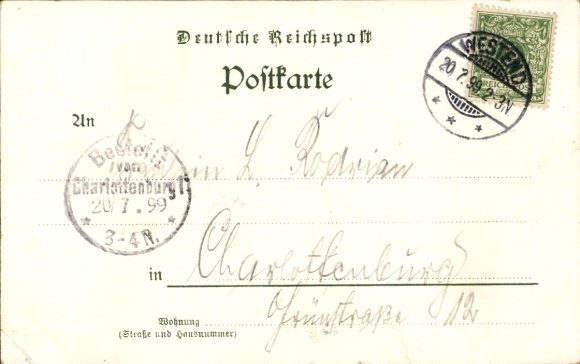 Deutsche Reichspost
Postkarte
WESTEND
20/7.99.2-3N
REICHSPOST
An
Fräulein L. Rodrian
Bestellt
vom
Charlottenburg 1.
20/7.99
3-4N.
in Charlottenburg
Grünstraße 12
Wohnung
(Straße und Hausnummer)